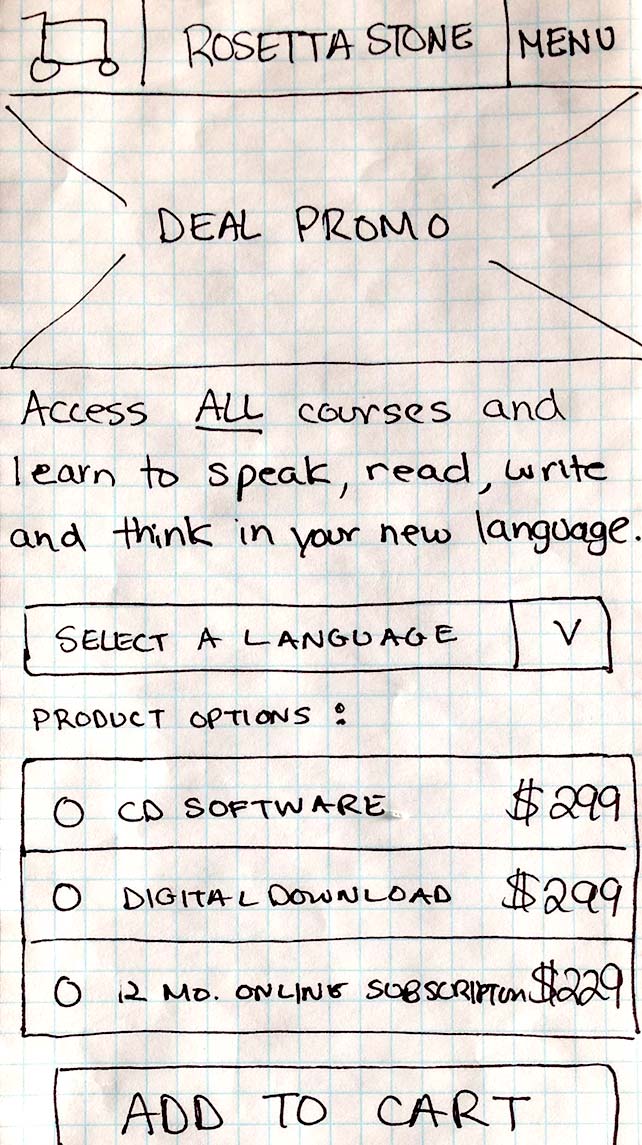 ROSETTA STONE
MENU
DEAL PROMO
Access ALL courses and
learn to speak, read, write
and think in your new language.
SELECT A LANGUAGE V
PRODUCT OPTIONS :
CD SOFTWARE $299
DIGITAL DOWNLOAD $299
12 MO. ONLINE SUBSCRIPTION $229
ADD TO CART